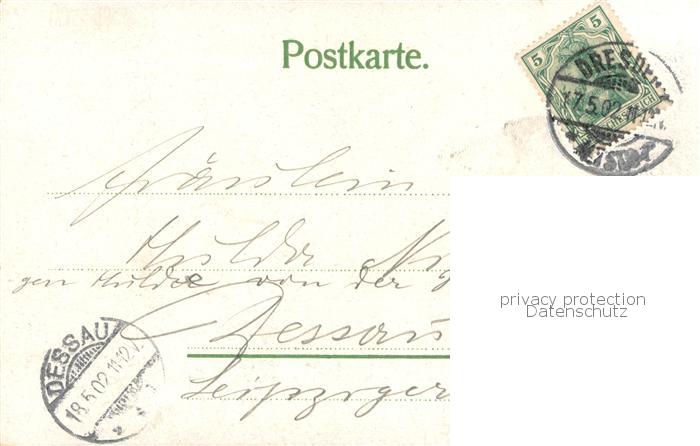 Postkarte.
5 5
DRESDEN
17.5.02.11-12
Fräulein
Hulda
gen Hulda von der
privacy protection
Datenschutz
Dessau
Leipziger
DESSAU
18.5.02.11-12V.